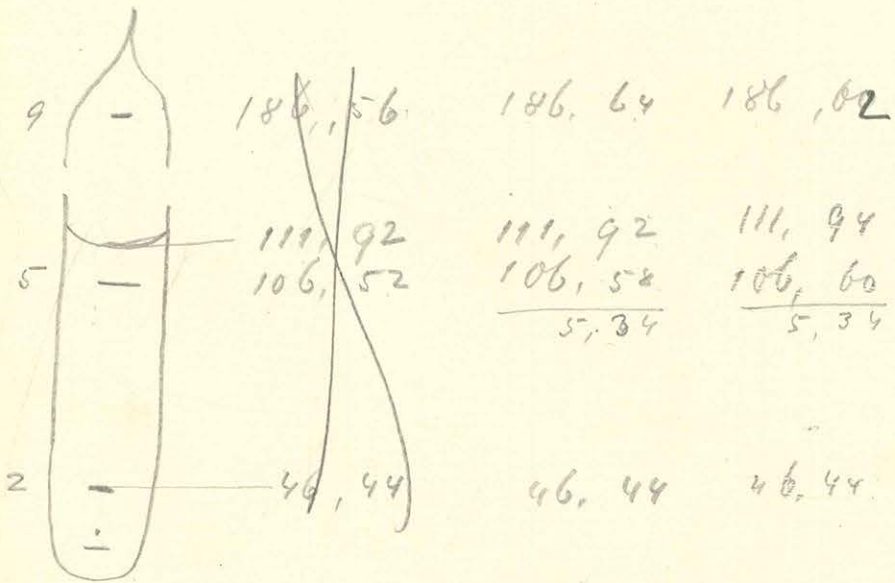 9 186,56 186,64 186,62
111,92 111,92 111,94
5 106,52 106,58 106,60
5,34 5,34
2 46,44 46,44 46,44